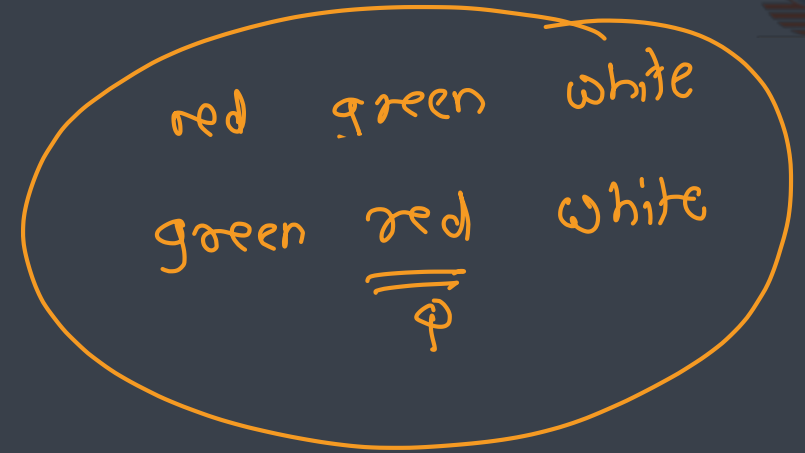 red green white
green red white
P